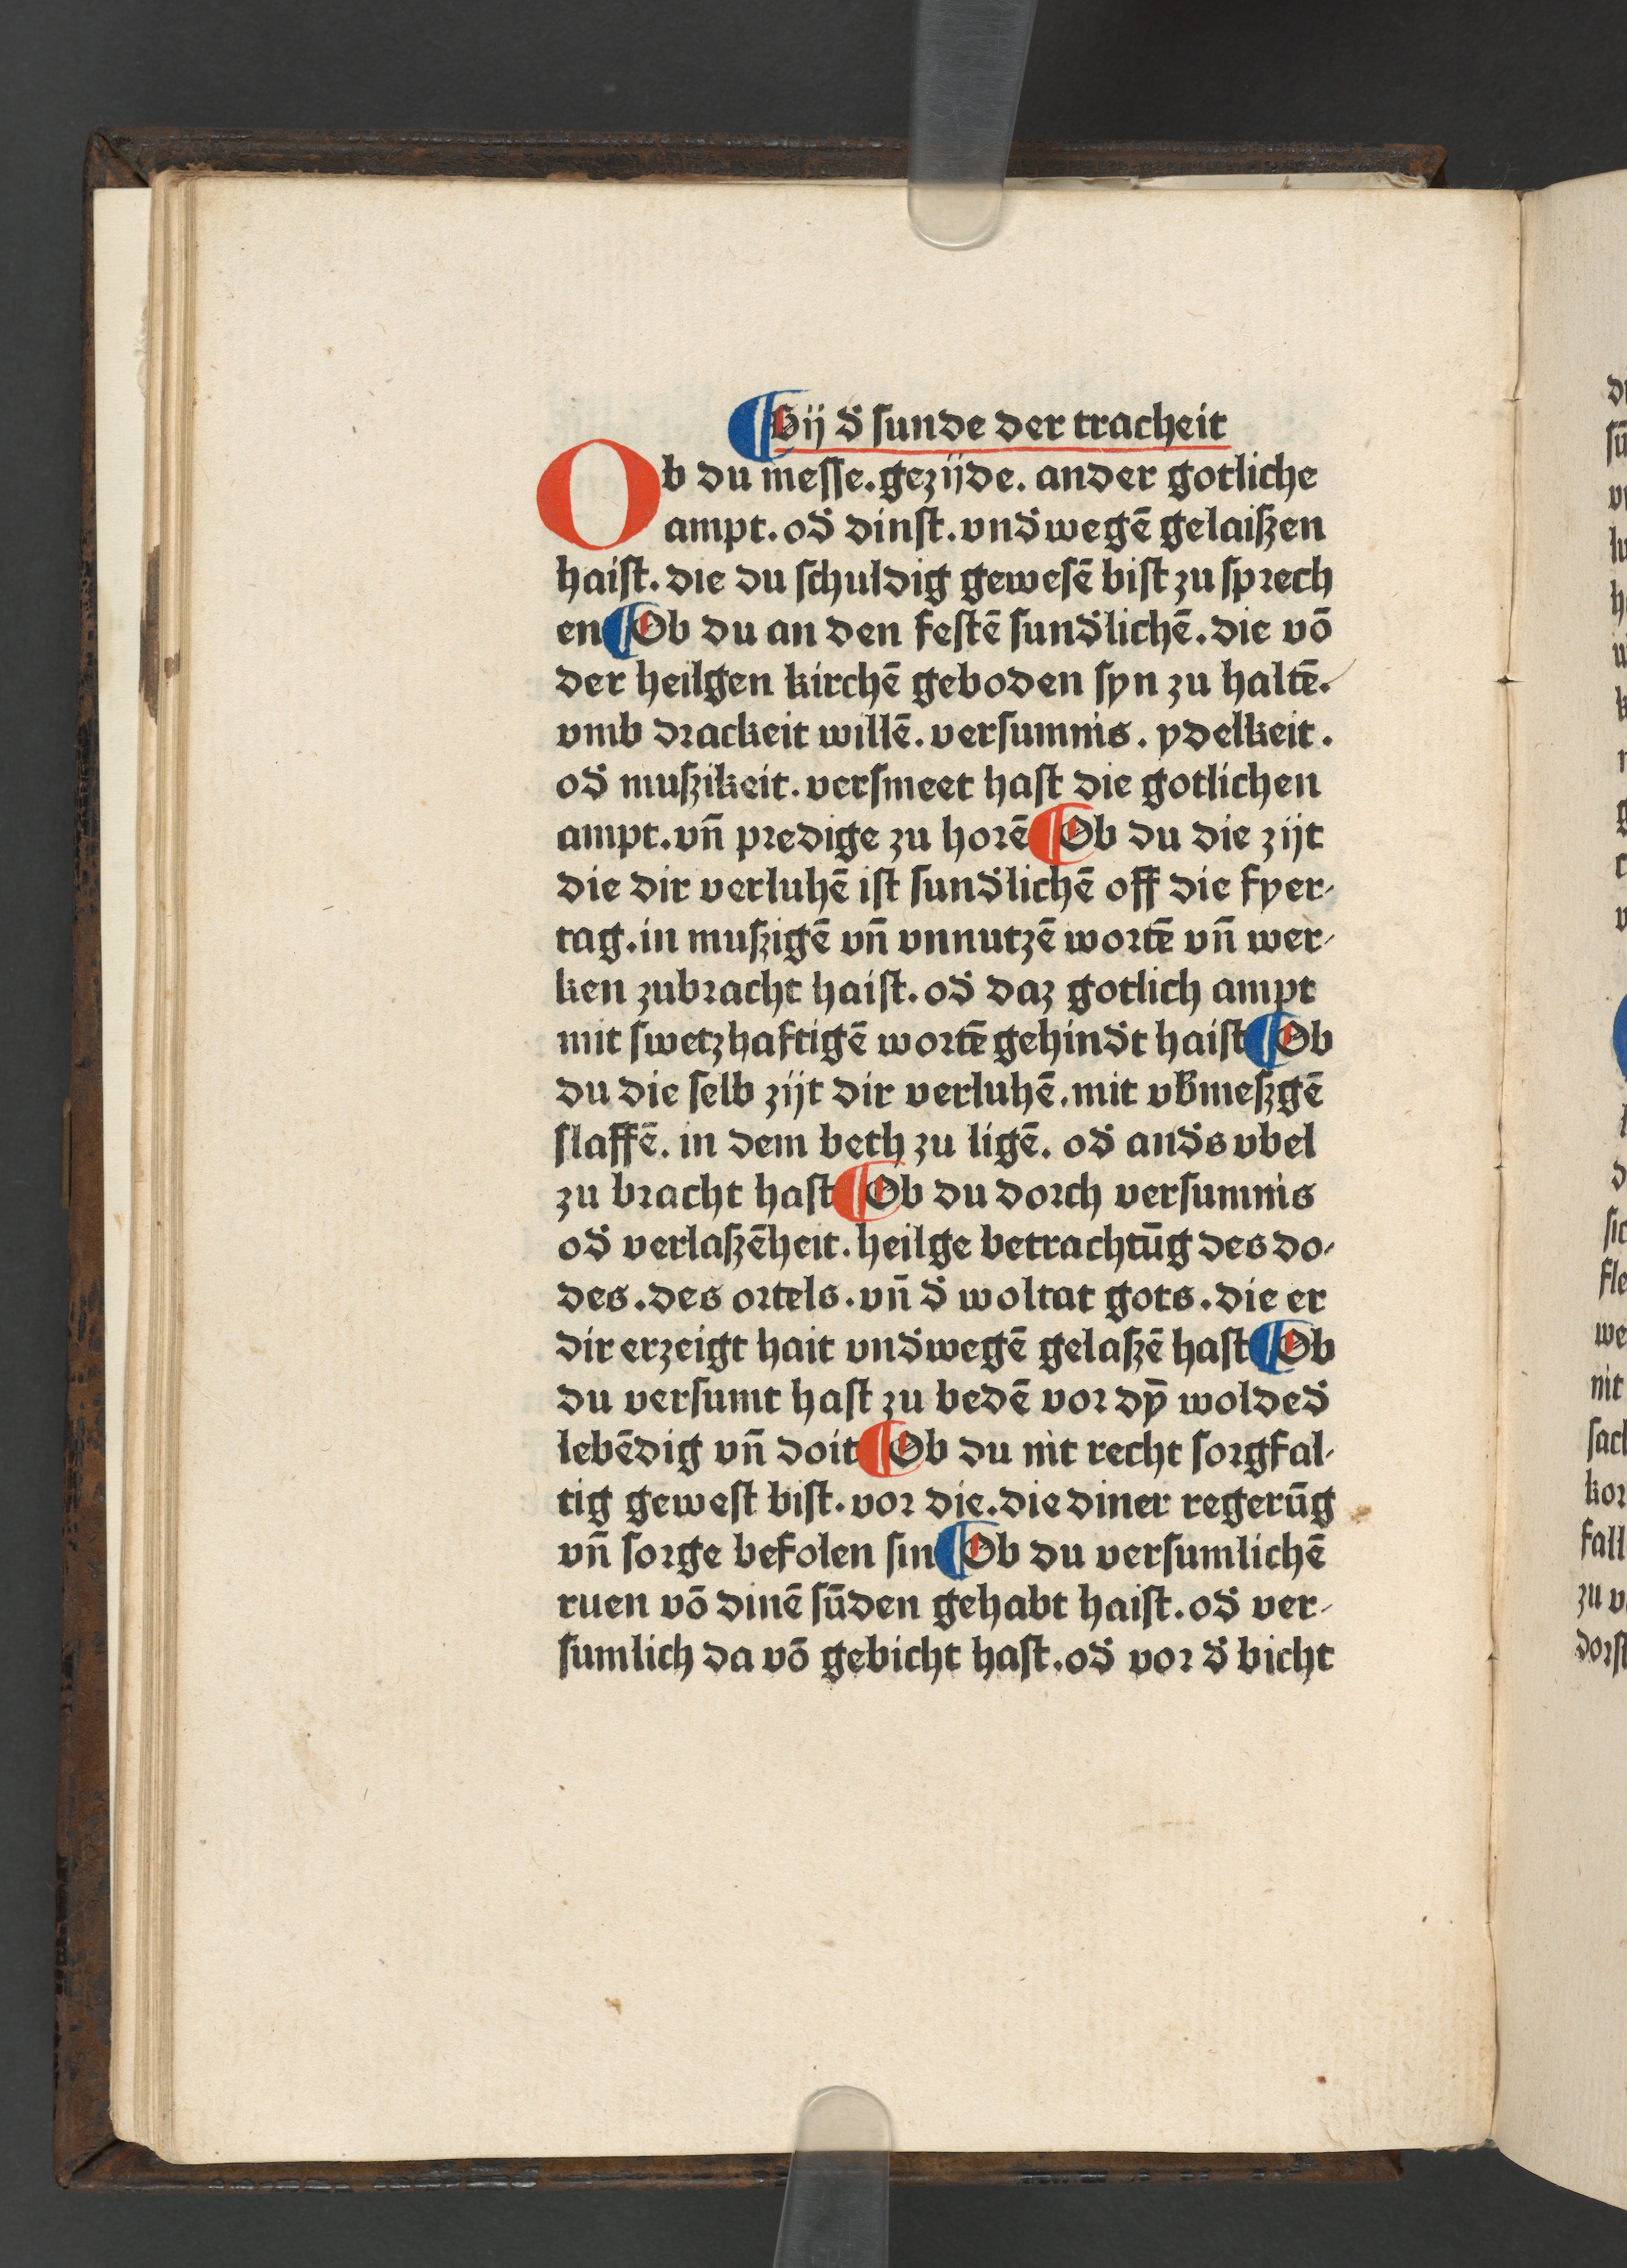 ¶ Bij đ sunde der tracheit
Ob du messe. gezijde. ander gotliche
ampt. ođ dinst. vnđwegē gelaiszen
haist. die du schuldig gewesē bist zu sprech
en ¶ Ob du an den festē sunđlichē. die vō
der heilgen kirchē geboden syn zu haltē.
vmb drackeit willē. versumnis. ydelkeit.
ođ muszikeit. versmeet hast die gotlichen
ampt. vn̄ predige zu horē ¶ Ob du die zijt
die dir verluhē ist sunđlichē off die fyer⸗
tag. in muszigē vn̄ vnnutzē wortē vn̄ wer⸗
ken zubracht haist. ođ daz gotlich ampt
mit swetzhaftigē wortē gehinđt haist ¶ Ob
du die selb zijt dir verluhē. mit vb̄meszgē
slaffē. in dem beth zu ligē. ođ anđs vbel
zu bracht hast ¶ Ob du dorch versumnis
ođ verlaszēheit. heilge betrachtūg des do⸗
des. des ortels. vn̄ đ woltat gots. die er
dir erzeigt hait vnđwegē gelaszē hast ¶ Ob
du versumt hast zu bedē vor dȳ woldeđ
lebēdig vn̄ doit ¶ Ob du nit recht sorgfal⸗
tig gewest bist. vor die. die diner regerūg
vn̄ sorge befolen sin ¶ Ob du versumlichē
ruen vō dinē sūden gehabt haist. ođ ver⸗
sumlich da vō gebicht hast. ođ vor đ bicht